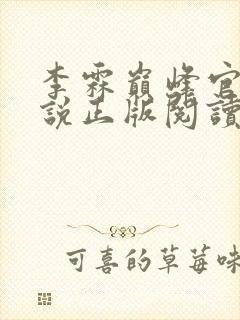 李霖巔峰官
說正版閱讀
可喜的草莓味